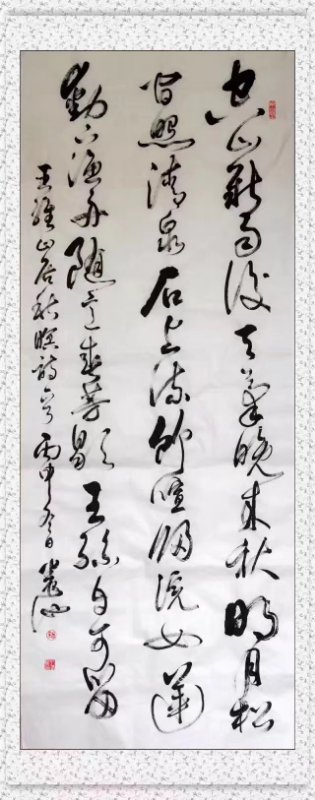 空山新雨後天氣晚來秋明月松
間照清泉石上流竹喧歸浣女蓮
動下漁舟隨意春芳歇王孫自可留
王維山居秋暝詩 丙申冬日